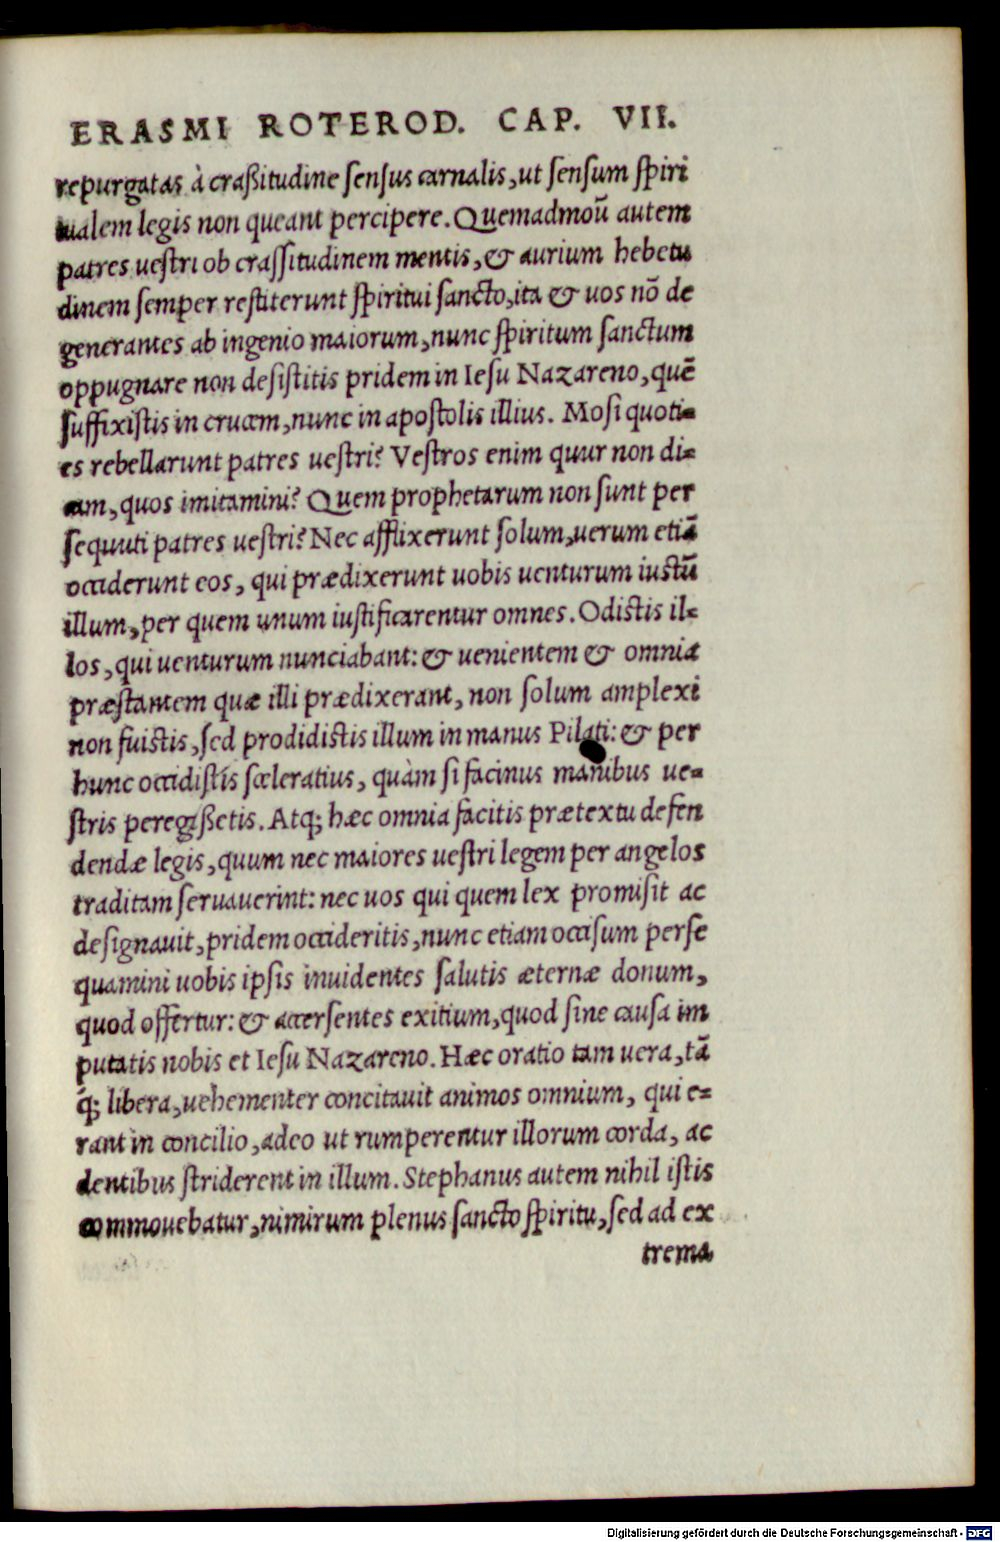 ERASMI ROTEROD. CAP. VII.
repurgatas à craßitudine ſenſus carnalis, ut ſenſum ſpiri
tualem legis non queant percipere. Quemadmoū autem
patres ueſtri ob craſſitudinem mentis, & aurium hebetu
dinem ſemper reſtiterunt ſpiritui ſancto, ita & uos nō de
generantes ab ingenio maiorum, nunc ſpiritum ſanctum
oppugnare non deſiſtitis pridem in Ieſu Nazareno, quē
ſuffixiſtis in crucem, nunc in apoſtolis illius. Moſi quoti=
es rebellarunt patres ueſtri? Veſtros enim quur non di=
cam, quos imitamini? Quem prophetarum non ſunt per
ſequuti patres ueſtri? Nec afflixerunt ſolum, uerum etiā
occiderunt eos, qui prædixerunt uobis uenturum iuſtū
illum, per quem unum iuſtificarentur omnes. Odiſtis il=
los, qui uenturum nunciabant: & uenientem & omnia
præſtantem quæ illi prædixerant, non ſolum amplexi
non fuiſtis, ſed prodidiſtis illum in manus Pilati: & per
hunc occidiſtis ſceleratius, quàm ſi facinus manibus ue=
ſtris peregißetis. Atq; hæc omnia facitis prætextu defen
dendæ legis, quum nec maiores ueſtri legem per angelos
traditam ſeruauerint: nec uos qui quem lex promiſit ac
deſignauit, pridem occideritis, nunc etiam occiſum perſe
quamini uobis ipſis inuidentes ſalutis æternæ donum,
quod offertur: & accerſentes exitium, quod ſine cauſa im
putatis nobis et Ieſu Nazareno. Hæc oratio tam uera, tā
q́; libera, uehementer concitauit animos omnium, qui e=
rant in concilio, adeo ut rumperentur illorum corda, ac
dentibus ſtriderent in illum. Stephanus autem nihil iſtis
commouebatur, nimirum plenus ſancto ſpiritu, ſed ad ex
trema
Digitalisierung gefördert durch die Deutsche Forschungsgemeinschaft - DFG